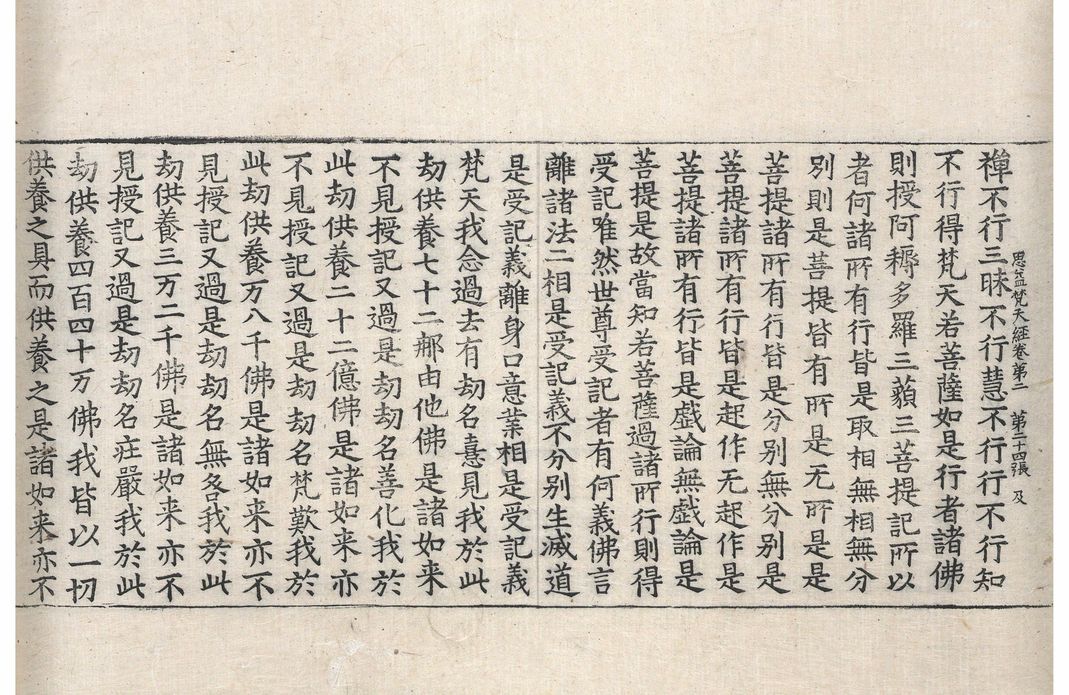 思益梵天經卷第二 第二十四張 及
禪不行三昧不行慧不行行不行知
不行得梵天若菩薩如是行者諸佛
則授阿耨多羅三藐三菩提記所以
者何諸所有行皆是取相無相無分
別則是菩提皆有所是无所是是
菩提諸所有行皆是分別無分別是
菩提諸所有行皆是起作无起作是
菩提諸所有行皆是戲論無戲論是
菩提是故當知若菩薩過諸所行則得
受記唯然世尊受記者有何義佛言
離諸法二相是受記義不分別生滅道
是受記義離身口意業相是受記義
梵天我念過去有劫名憙見我於此
劫供養七十二那由他佛是諸如来
不見授記又過是劫劫名善化我於
此劫供養二十二億佛是諸如来亦
不見授記又過是劫劫名梵歎我於
此劫供養万八千佛是諸如来亦不
見授記又過是劫劫名無咎我於此
劫供養三万二千佛是諸如来亦不
見授記又過是劫劫名莊嚴我於此
劫供養四百四十万佛我皆以一切
供養之具而供養之是諸如来亦不